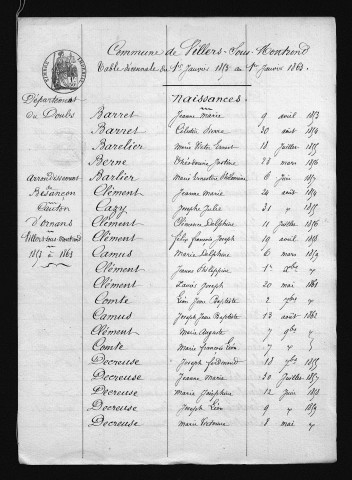 Commune de Villers-Sous-Montrond
Table décennale du 1er Janvier 1853 au 1er Janvier 1863.
Département
du Doubs
Arrondissement
de
Besançon
Canton
d'Ornans
Villers-sous-Montrond
1853 à 1863
Naissances
Barret Jeanne Marie 9 avril 1853
Barret Célestin Pierre 30 août 1854
Barelier Marie 18 Juillet 1855
Berne Justine 23 mars 1856
Barlier Marie Ernestine Philomène 6 Juin
Clément Jeanne Marie 20 août 1854
Cazy Joseph Jules 31
Clément Clémence Delphine 11 Juillet 1856
Clément Félix François Joseph 10 avril 1858
Camus Marie Delphine 6 mars 1859
Clément Jeanne Philippine 1er
Clément Louis Joseph 20 mai 1861
Comte Léon Jean Baptiste 2 9bre
Camus Joseph Jean Baptiste 13 août 1862
Clément Marie Auguste 7 9bre
Comte Marie François Léon 7
Decreuse Joseph Ferdinand 13
Decreuse Jeanne Marie 30 Juillet 1857
Decreuse Marie Joséphine 12 Juin
Decreuse Joseph Léon 9
Decreuse Marie 8 mai